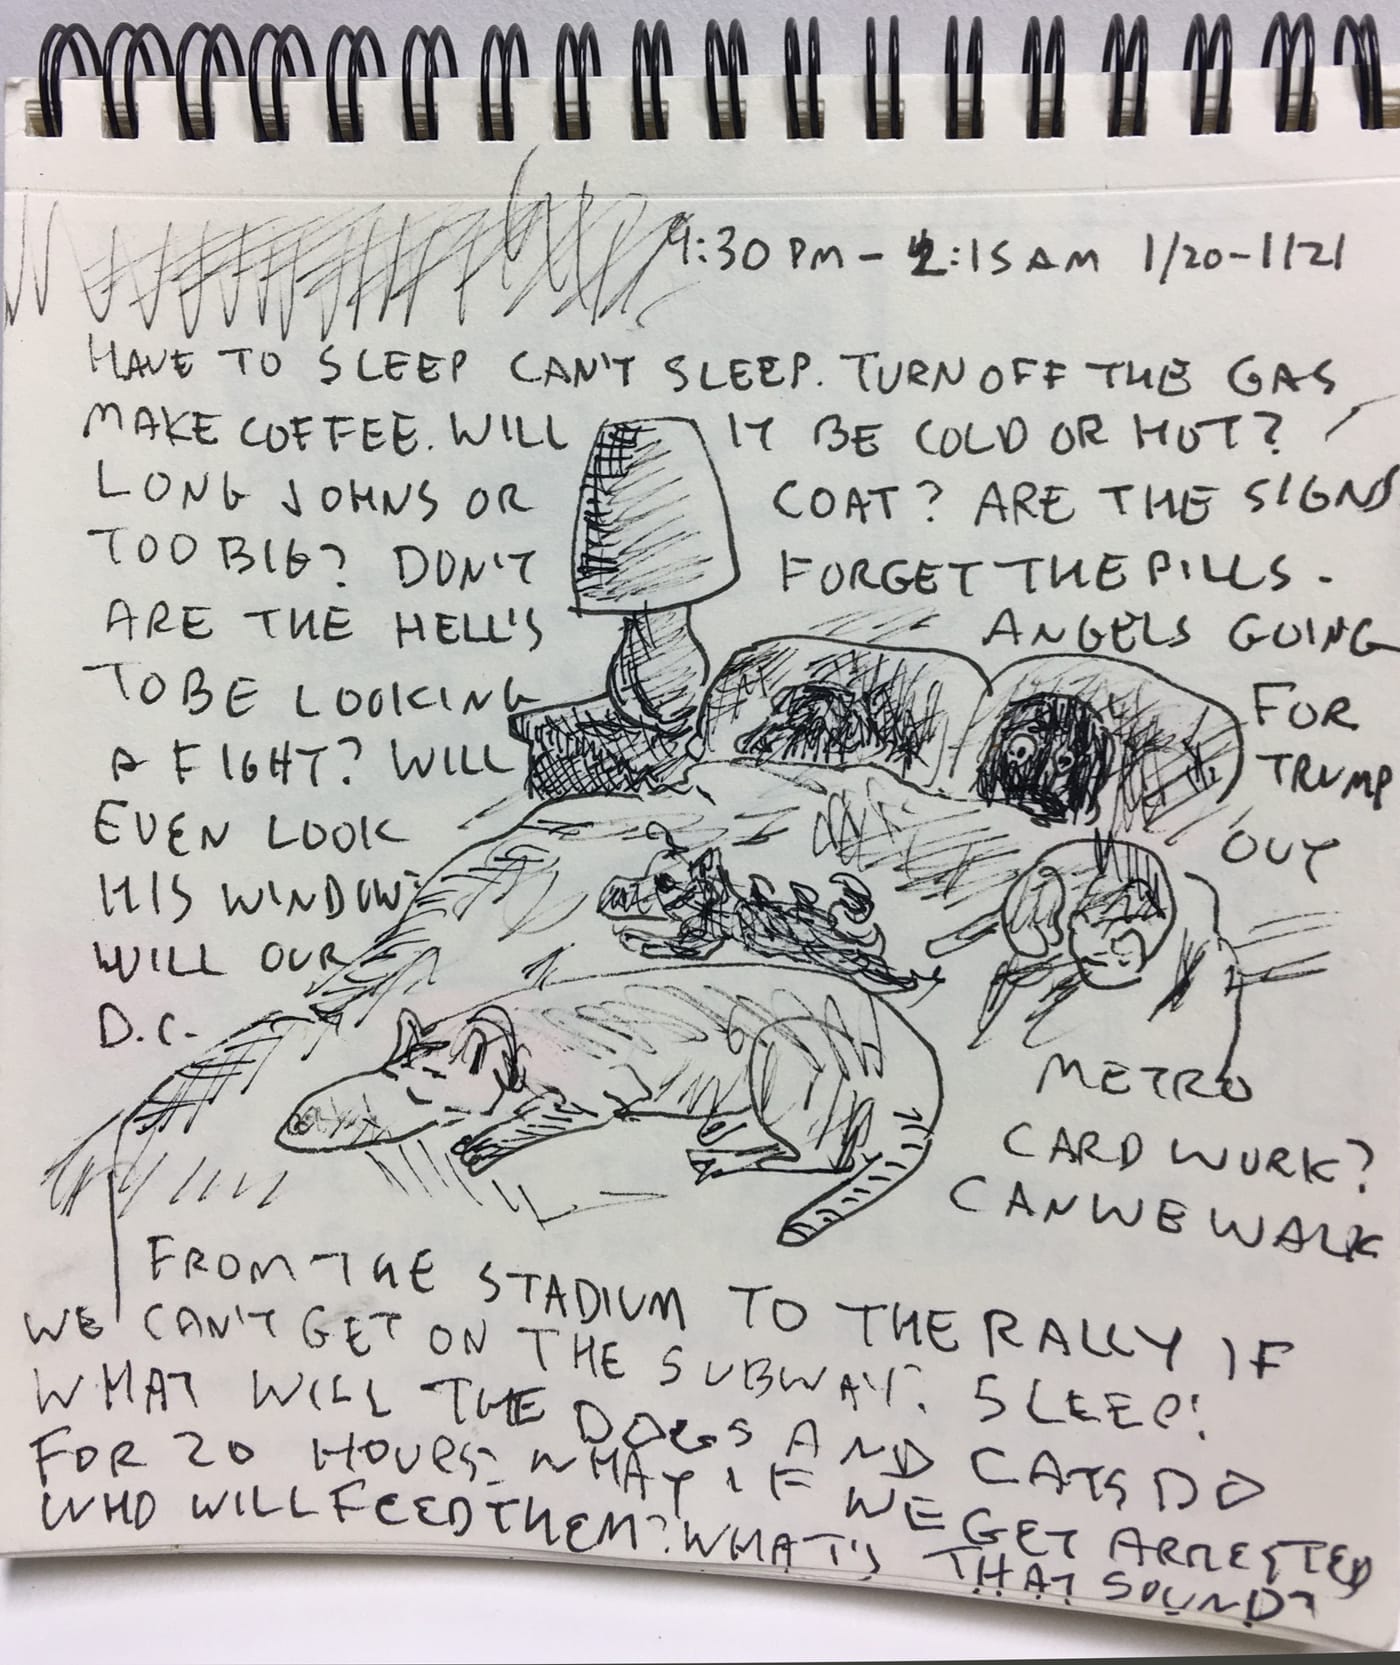 9:30 PM - 2:15 AM 1/20-1/21
HAVE TO SLEEP CAN'T SLEEP. TURN OFF THE GAS
MAKE COFFEE. WILL IT BE COLD OR HOT?
LONG JOHNS OR COAT? ARE THE SIGNS
TOO BIG? DON'T FORGET THE PILLS.
ARE THE HELL'S ANGELS GOING
TO BE LOOKING FOR
A FIGHT? WILL TRUMP
EVEN LOOK OUT
HIS WINDOW?
WILL OUR
D.C. METRO
CARD WORK?
CAN WE WALK
FROM THE STADIUM TO THE RALLY IF
WE CAN'T GET ON THE SUBWAY? SLEEP!
WHAT WILL THE DOGS AND CATS DO
FOR 20 HOURS? WHAT IF WE GET ARRESTED
WHO WILL FEED THEM? WHAT'S THAT SOUND?